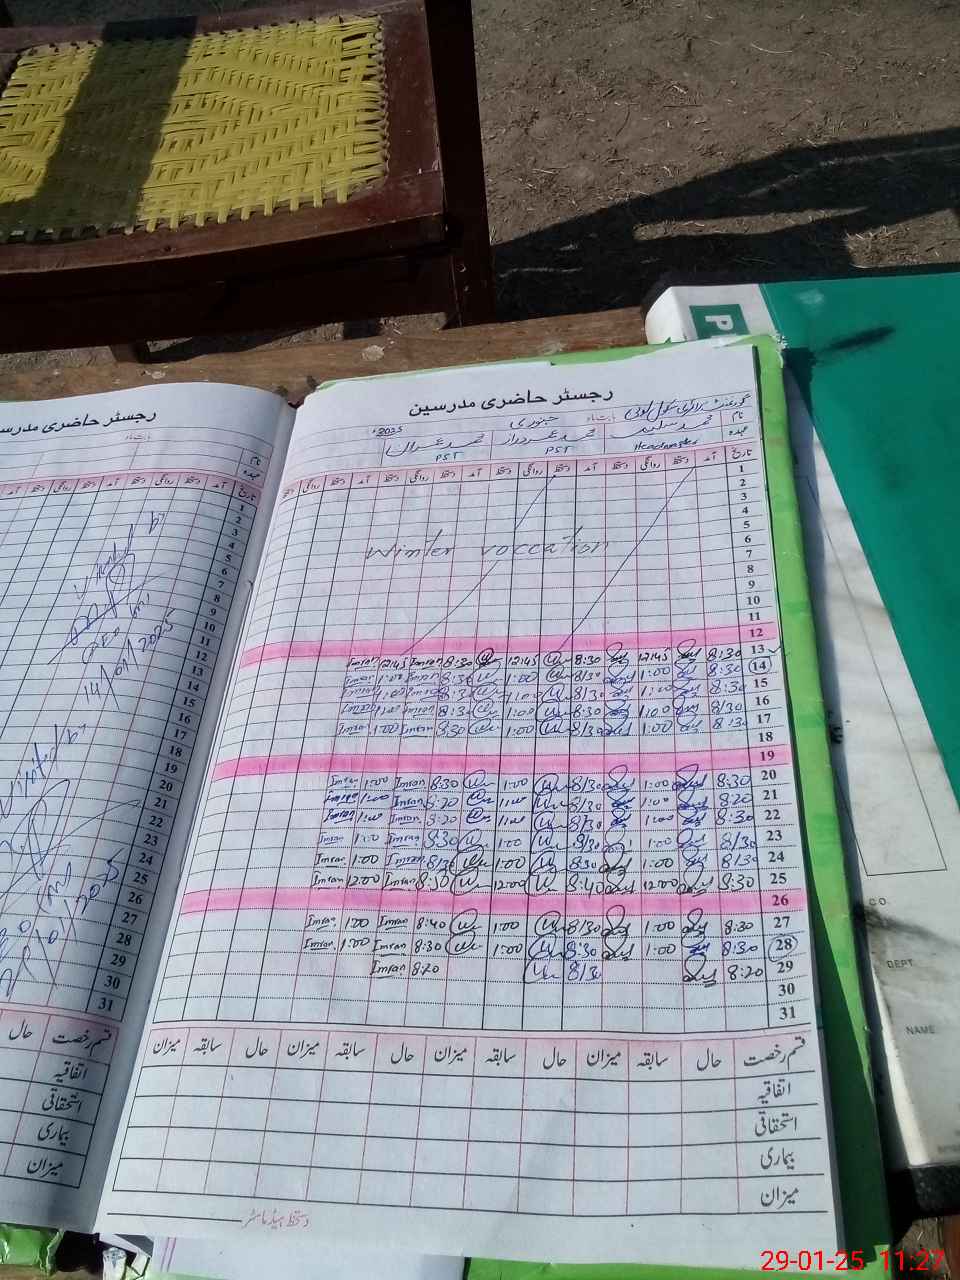 رجسٹر حاضری مدرسین
گورنمنٹ پرائمری سکول
بابت ماہ جنوری 2025
نام محمد سلیم محمد عمر دراز محمد عمران
عہدہ Headmaster PST PST
تاریخ آمد دستخط روانگی دستخط آمد دستخط روانگی دستخط آمد دستخط روانگی دستخط
1
2
3
4
5
6
Winter voccation
7
8
9
10
11
12
13 8:30 12:45 8:30 12:45 8:30 Imran 12:45 Imran
14 8:30 1:00 8/30 1:00 8:30 Imran 1:00 Imran
15 8:30 1:00 8/30 1:00 8:30 Imran 1:00 Imran
16 8/30 1:00 8:30 1:00 8:30 Imran 1:00 Imran
17 8:30 1:00 8/30 1:00 8:30 Imran 1:00 Imran
18
19
20 8:30 1:00 8/30 1:00 8:30 Imran 1:00 Imran
21 8:20 1:00 8/30 1:00 8:20 Imran 1:00 Imran
22 8:30 1:00 8/30 1:00 8:20 Imran 1:00 Imran
23 8/30 1:00 8/30 1:00 8:30 Imran 1:00 Imran
24 8/30 1:00 8:30 1:00 8/30 Imran 1:00 Imran
25 8:30 12:00 8:40 12:00 8:30 Imran 12:00 Imran
26
27 8:30 1:00 8/30 1:00 8:40 Imran 1:00 Imran
28 8:30 1:00 8:30 1:00 8:30 Imran 1:00 Imran
29 8:20 8/30 8:20 Imran
30
31
قسم رخصت حال سابقہ میزان حال سابقہ میزان حال سابقہ میزان
اتفاقیہ
استحقاقی
بیماری
میزان
دستخط ہیڈ ماسٹر
رجسٹر حاضری مدرسین
بابت ماہ
نام
عہدہ
تاریخ آمد دستخط روانگی دستخط آمد دستخط روانگی دستخط آمد
1
2
3
4
5
6
7
8
9
10
11
12
13
14
15
16
17
18
19
20
21
22
23
24
25
26
27
28
29
30
31
14/01/2025
قسم رخصت حال
اتفاقیہ
استحقاقی
بیماری
میزان
CO.
DEPT.
NAME
29-01-25 11:27